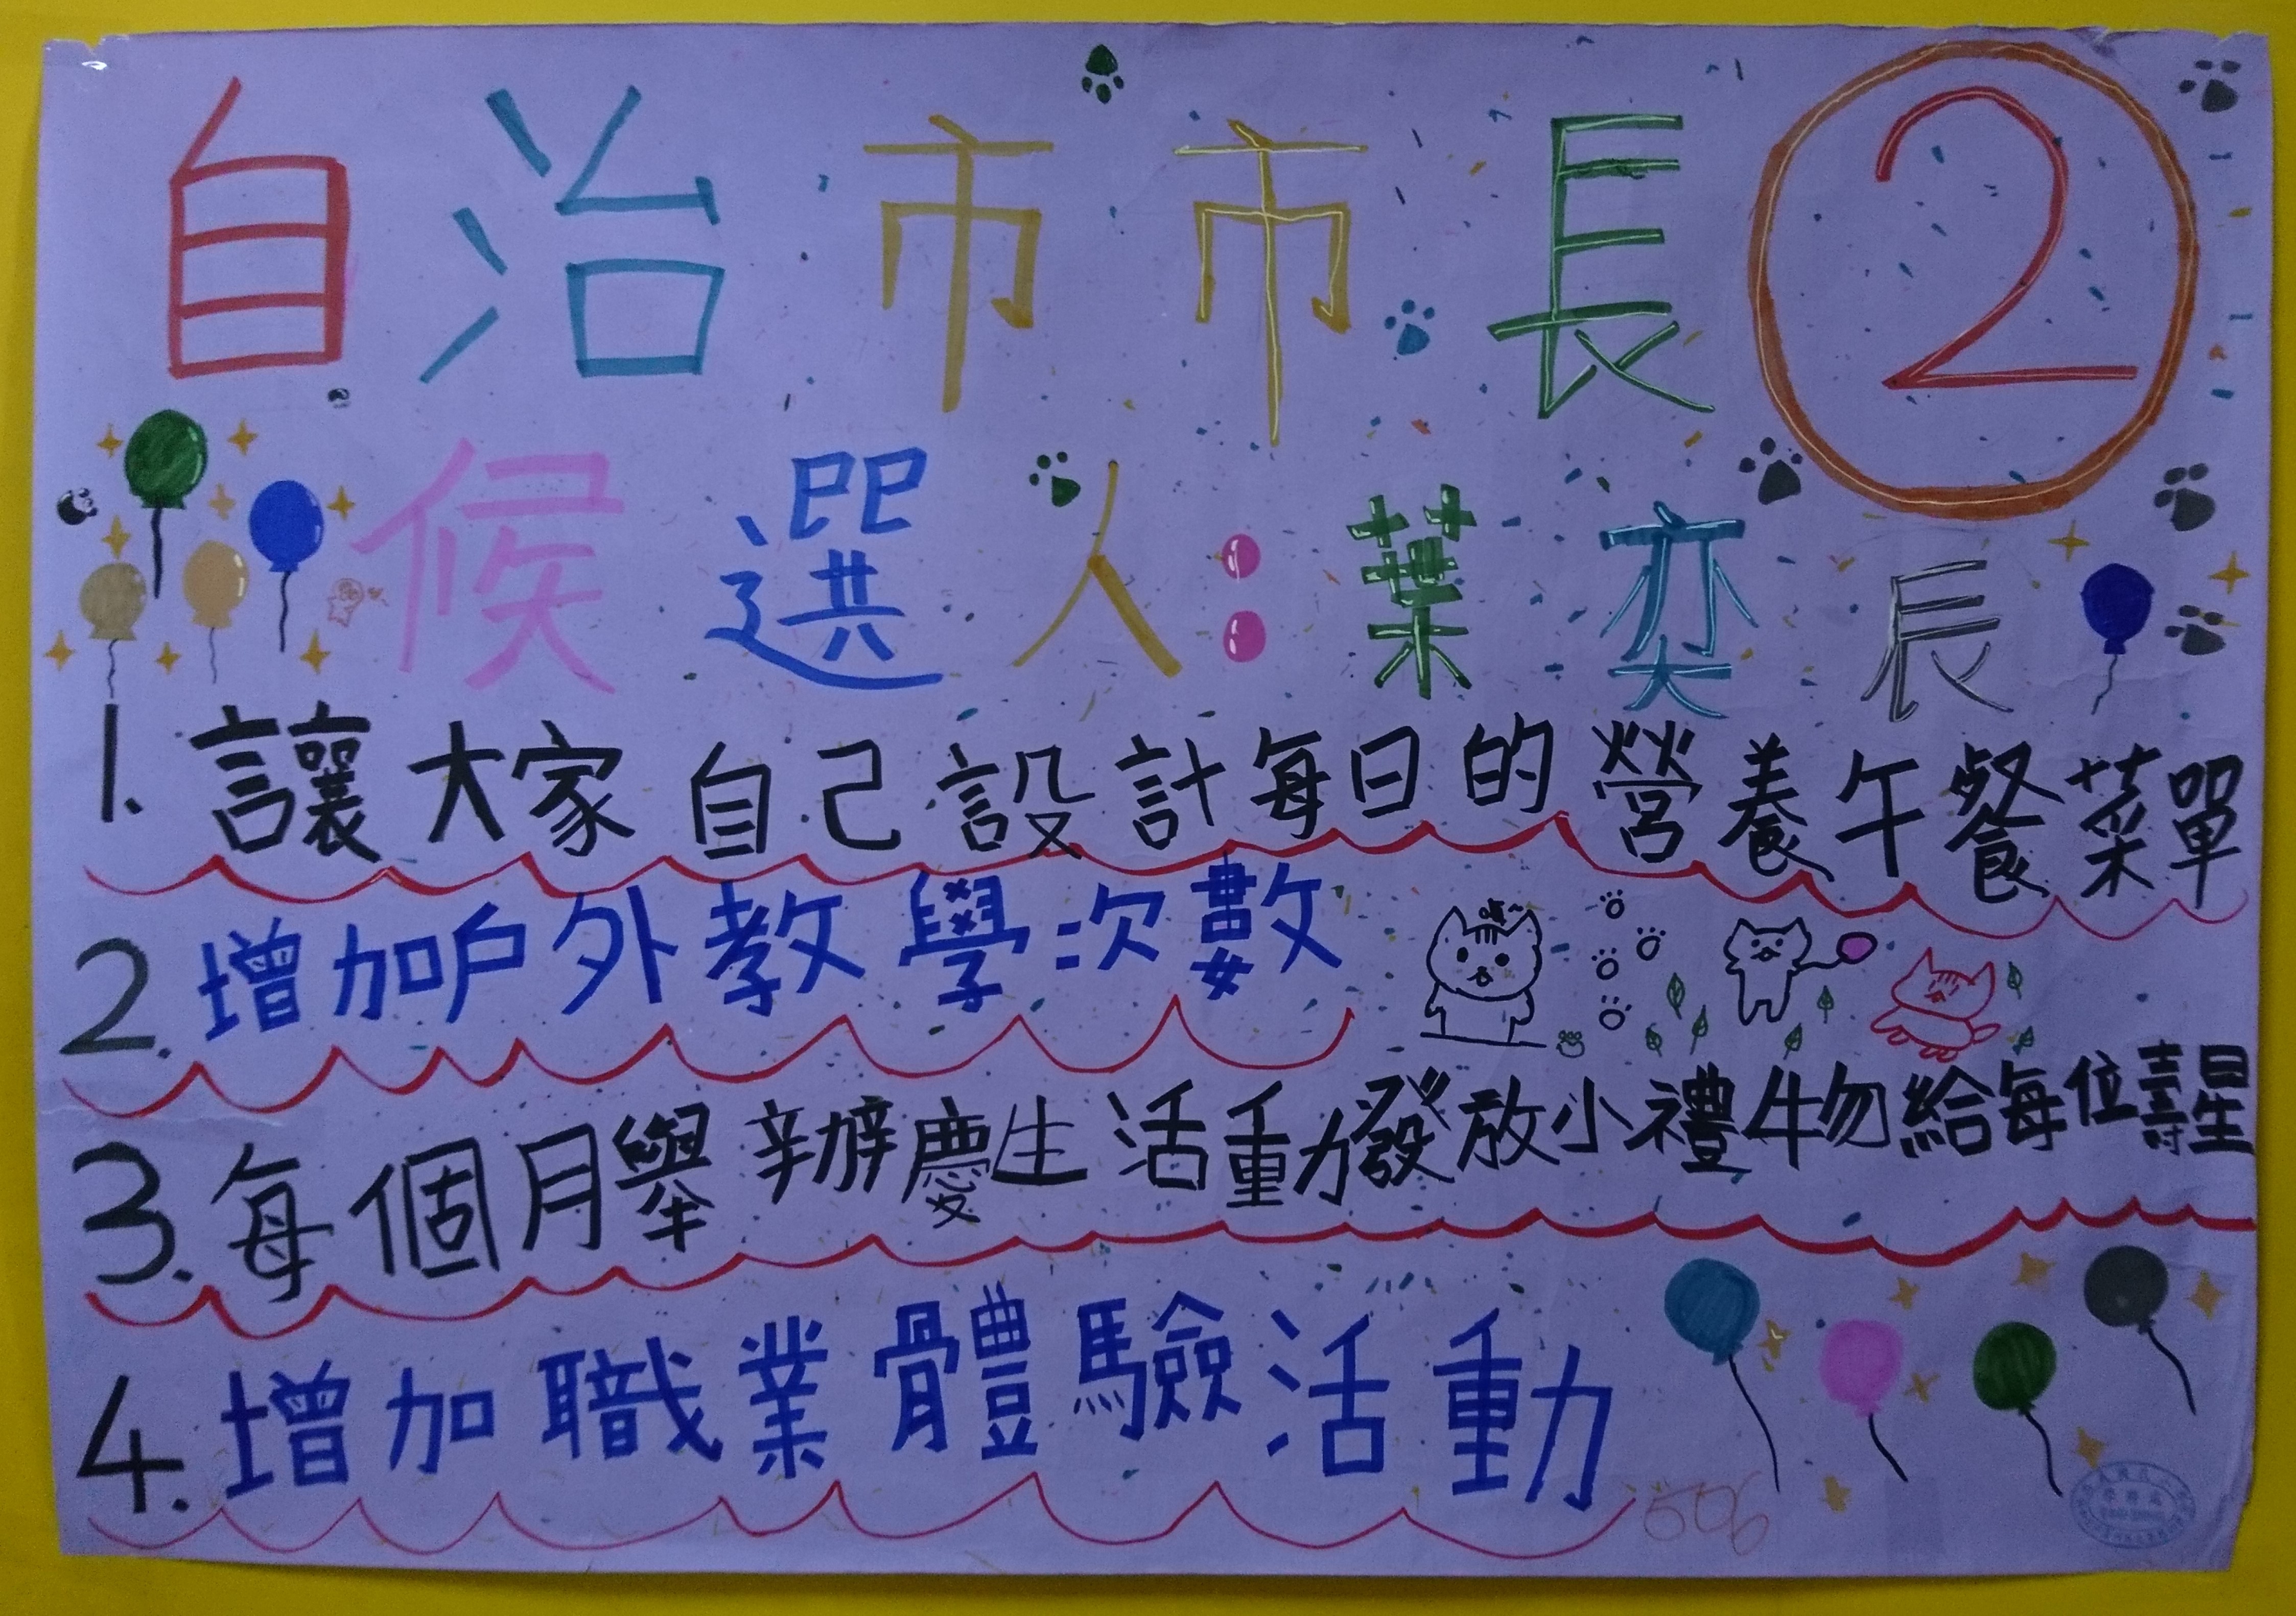 自治市市長②
候選人:葉奕辰
1.讓大家自己設計每日的營養午餐菜單
2.增加戶外教學次數
3.每個月舉辦慶生活動發放小禮物給每位壽星
4.增加職業體驗活動
506